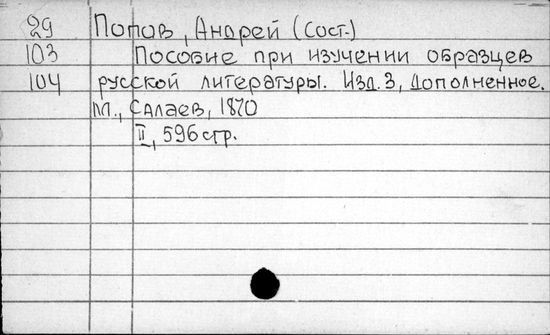 29 Попов, Андрей (Сост.)
103 Пособие при изучении образцев
104 русской литературы. Изд. 3, дополненное.
М., Салаев, 1870
II, 596 стр.